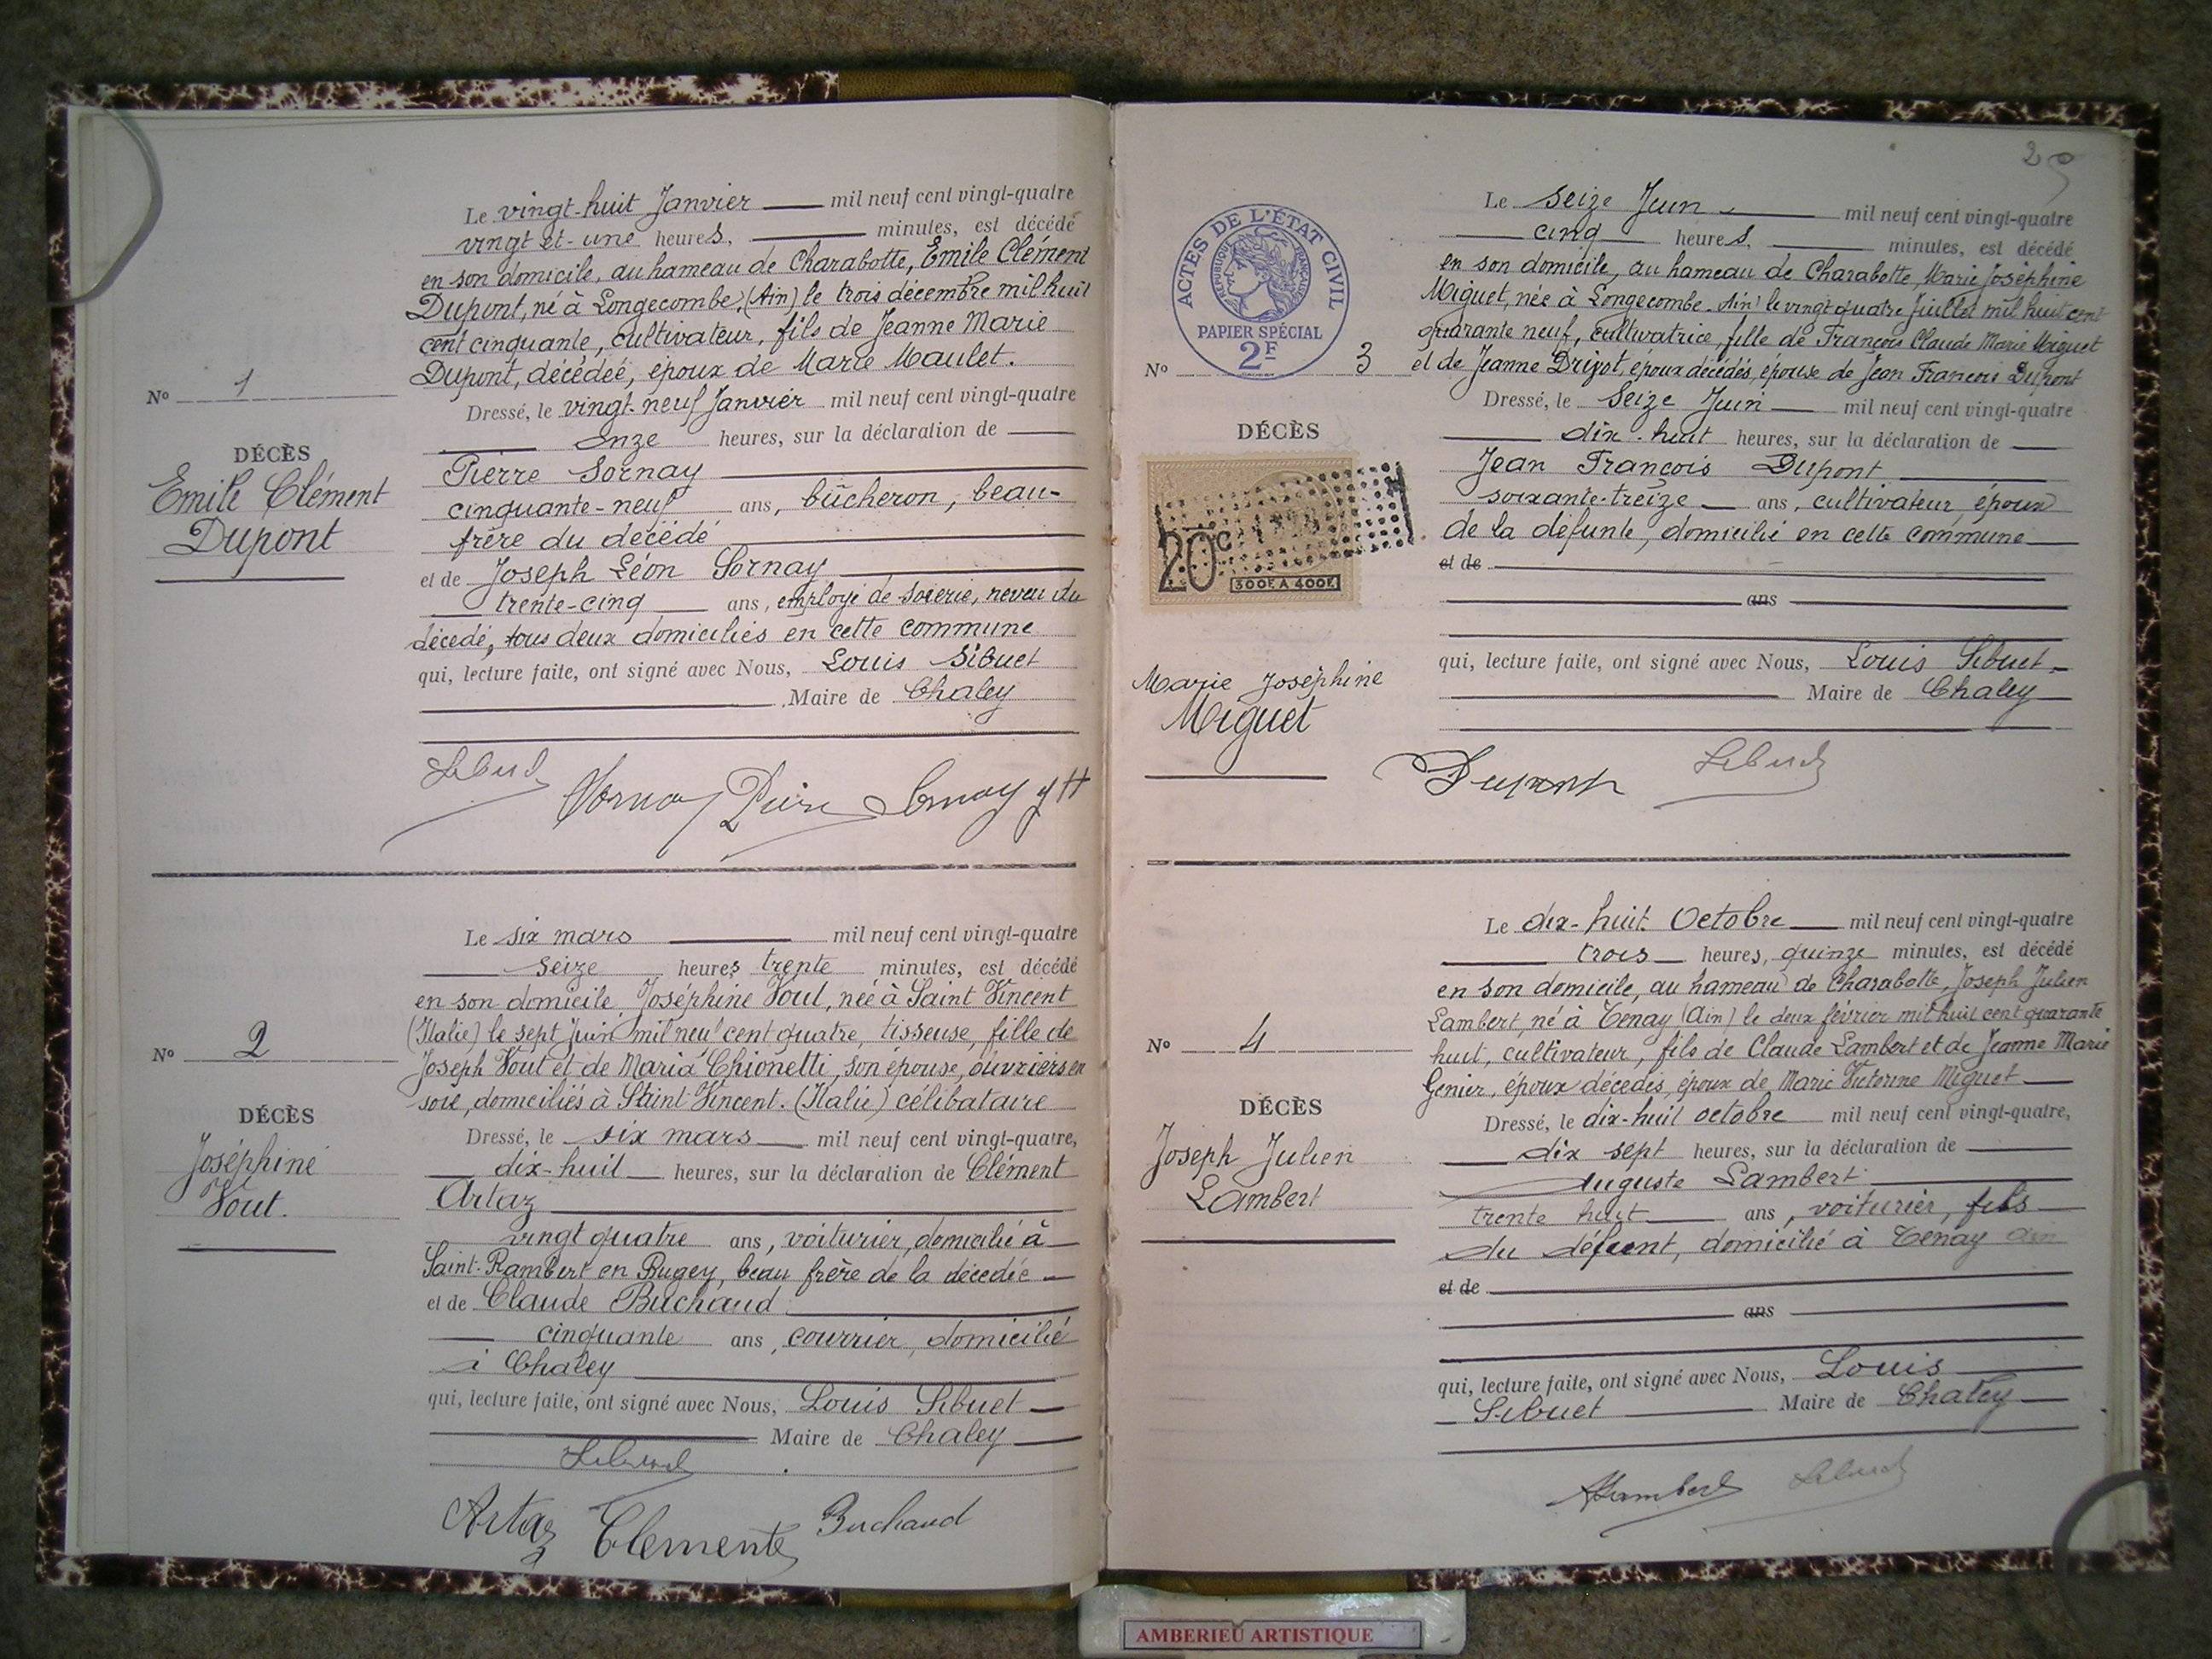 Le vingt-huit Janvier mil neuf cent vingt-quatre
vingt et une heures, minutes, est décédé
en son domicile, au hameau de Charabotte, Emile Clément
Dupont, né à Longecombe, (Ain) le trois décembre mil huit
cent cinquante, cultivateur, fils de Jeanne Marie
Dupont, décédée, époux de Marie Maulet.
No 1
Dressé, le vingt-neuf Janvier mil neuf cent vingt-quatre
onze heures, sur la déclaration de
DÉCÈS
Emile Clément
Dupont
Pierre Sornay
cinquante-neuf ans, bûcheron, beau-
frère du décédé
et de Joseph Léon Sornay
trente-cinq ans, employé de soierie, neveu du
décédé, tous deux domiciliés en cette commune
qui, lecture faite, ont signé avec Nous, Louis Sibuet
Maire de Chaley
Sibuet
Sornay Pierre Sornay
Le six mars mil neuf cent vingt-quatre
seize heures trente minutes, est décédé
en son domicile, Joséphine Vout, née à Saint Vincent
(Italie) le sept Juin mil neuf cent quatre, tisseuse, fille de
No 2
Joseph Vout et de Maria Chionetti, son épouse, ouvriers en
soie, domiciliés à Saint-Vincent. (Italie) célibataire
DÉCÈS
Joséphine
Vout.
Dressé, le six mars mil neuf cent vingt-quatre,
dix-huit heures, sur la déclaration de Clément
Artaz
vingt quatre ans, voiturier, domicilié à
Saint-Rambert en Bugey, beau frère de la décédée
et de Claude Buchaud
cinquante ans, courrier, domicilié
à Chaley
qui, lecture faite, ont signé avec Nous, Louis Sibuet
Maire de Chaley
Sibuet
Artaz Clemente Buchaud
Le seize Juin mil neuf cent vingt-quatre
cinq heures, minutes, est décédé
en son domicile, au hameau de Charabotte, Marie Joséphine
Miguet, née à Longecombe Ain le vingt quatre Juillet mil huit cent
quarante neuf, cultivatrice, fille de François Claude Marie Miguet
et de Jeanne Drizot, époux décédés, épouse de Jean François Dupont
ACTES DE L'ÉTAT CIVIL
RÉPUBLIQUE FRANÇAISE
PAPIER SPÉCIAL
2F
No 3
DÉCÈS
20c
300F A 400F
Marie Joséphine
Miguet
Dressé, le seize Juin mil neuf cent vingt-quatre
dix-huit heures, sur la déclaration de
Jean François Dupont
soixante-treize ans, cultivateur, époux
de la défunte, domicilié en cette commune
et de
ans
qui, lecture faite, ont signé avec Nous, Louis Sibuet
Maire de Chaley
Dupont Sibuet
Le dix-huit Octobre mil neuf cent vingt-quatre
trois heures, quinze minutes, est décédé
en son domicile, au hameau de Charabotte, Joseph Julien
Lambert, né à Tenay (Ain) le deux février mil huit cent quarante
No 4
huit, cultivateur, fils de Claude Lambert et de Jeanne Marie
Genier, époux décédés, époux de Marie Victorine Miguet
DÉCÈS
Joseph Julien
Lambert
Dressé, le dix-huit octobre mil neuf cent vingt-quatre,
dix sept heures, sur la déclaration de
Auguste Lambert
trente huit ans, voiturier, fils
du défunt, domicilié à Tenay Ain
et de
ans
qui, lecture faite, ont signé avec Nous, Louis
Sibuet Maire de Chaley
ALambert Sibuet
AMBERIEU ARTISTIQUE